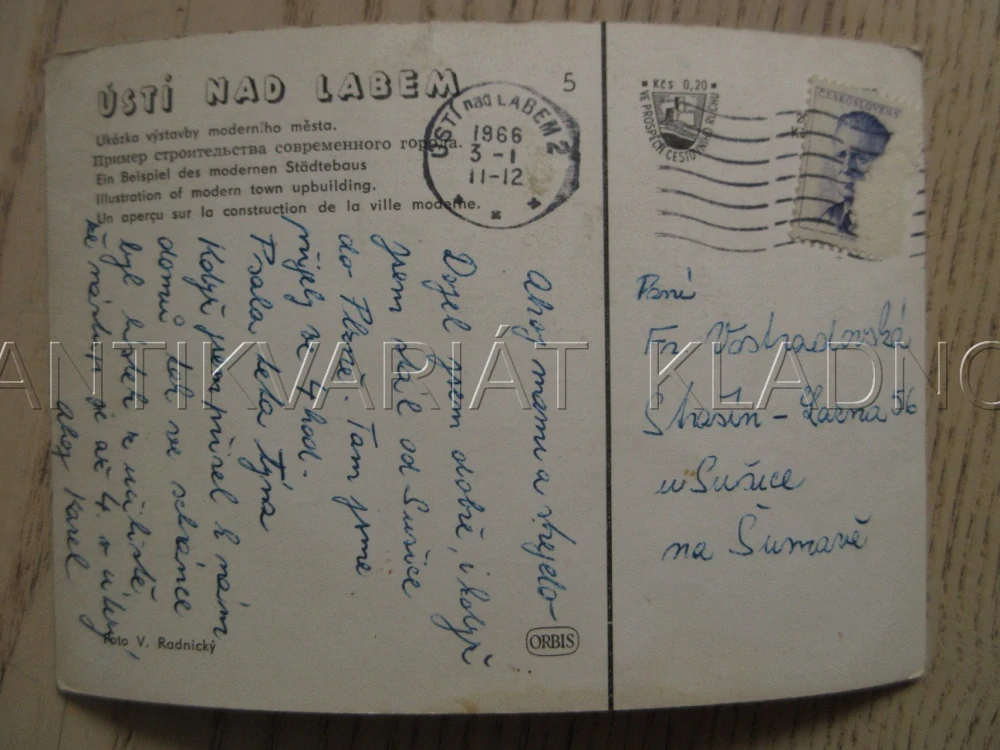 ÚSTÍ NAD LABEM
5
Ukázka výstavby moderního města.
Пример строительства современного города.
Ein Beispiel des modernen Städtebaus
Illustration of modern town upbuilding.
Un aperçu sur la construction de la ville moderne.
ÚSTÍ nad LABEM 2
1966
3-1
11-12
Kčs 0,20
VE PROSPĚCH CESTOVNÍHO RUCHU
ČESKOSLOVEN
Ahoj mamu a strejdo
Dojel jsem dobře, i když
jsem stál od Sušice
do Plzně. Tam jsme
přijely ve 4 hod.
Psala teta Týna
Když jsem přišel k nám
domů tak ve schránce
byl lístek z učiliště,
že nástup je až 4. v úterý
ahoj Karel
Paní
Fr.
Strašín - Lazna 56
u Sušice
na Šumavě
Foto V. Radnický
ORBIS
ANTIKVARIÁT KLADNO